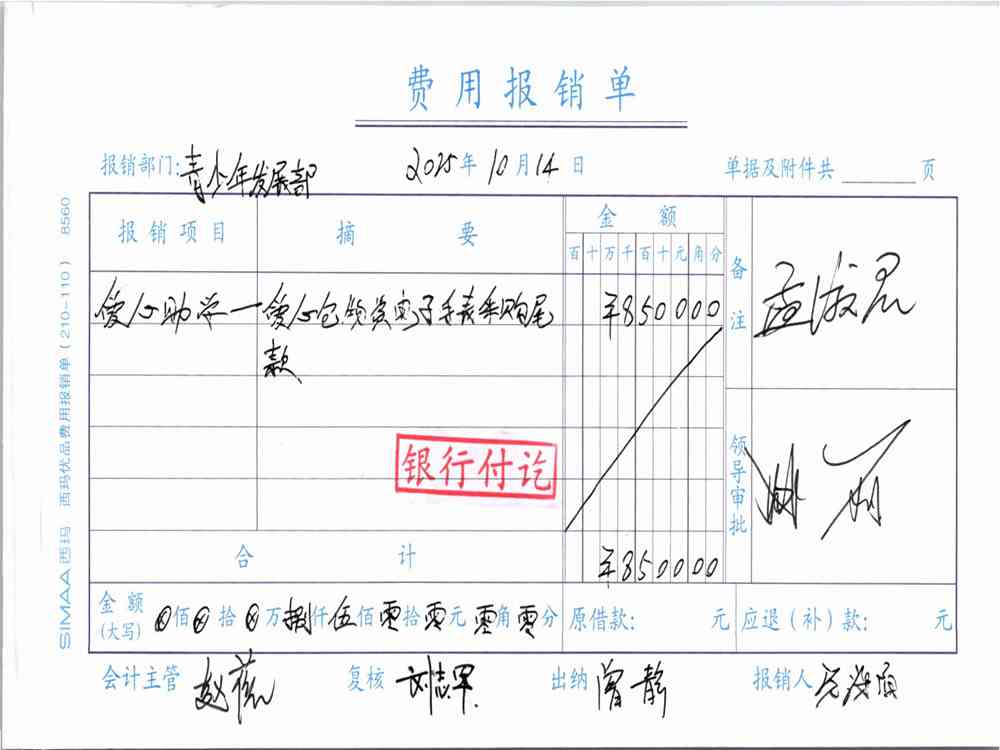 费用报销单
报销部门:青少年发展部 2025年10月14日 单据及附件共 页
报销项目 摘要 金额 备注
百十万千百十元角分
爱心助学—爱心包领袋电子手表采购尾 ¥850000
款
银行付讫
领导审批
合计 ¥850000
金额(大写) 佰 拾 万捌仟伍佰零拾零元零角零分 原借款: 元 应退(补)款: 元
会计主管 赵薇 复核 刘志罕 出纳 曾静 报销人
SIMAA西玛 西玛优品费用报销单(210-110) 8560